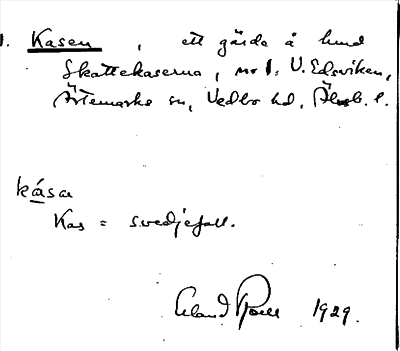 1. Kasen, ett gärde å hmd
Skattekaserna, nr 1. V. Edsviken,
Ärtemarks sn, Vedbo hd, Älvsb. l.
kåsa
Kas = svedjefall.
Erland 1929.